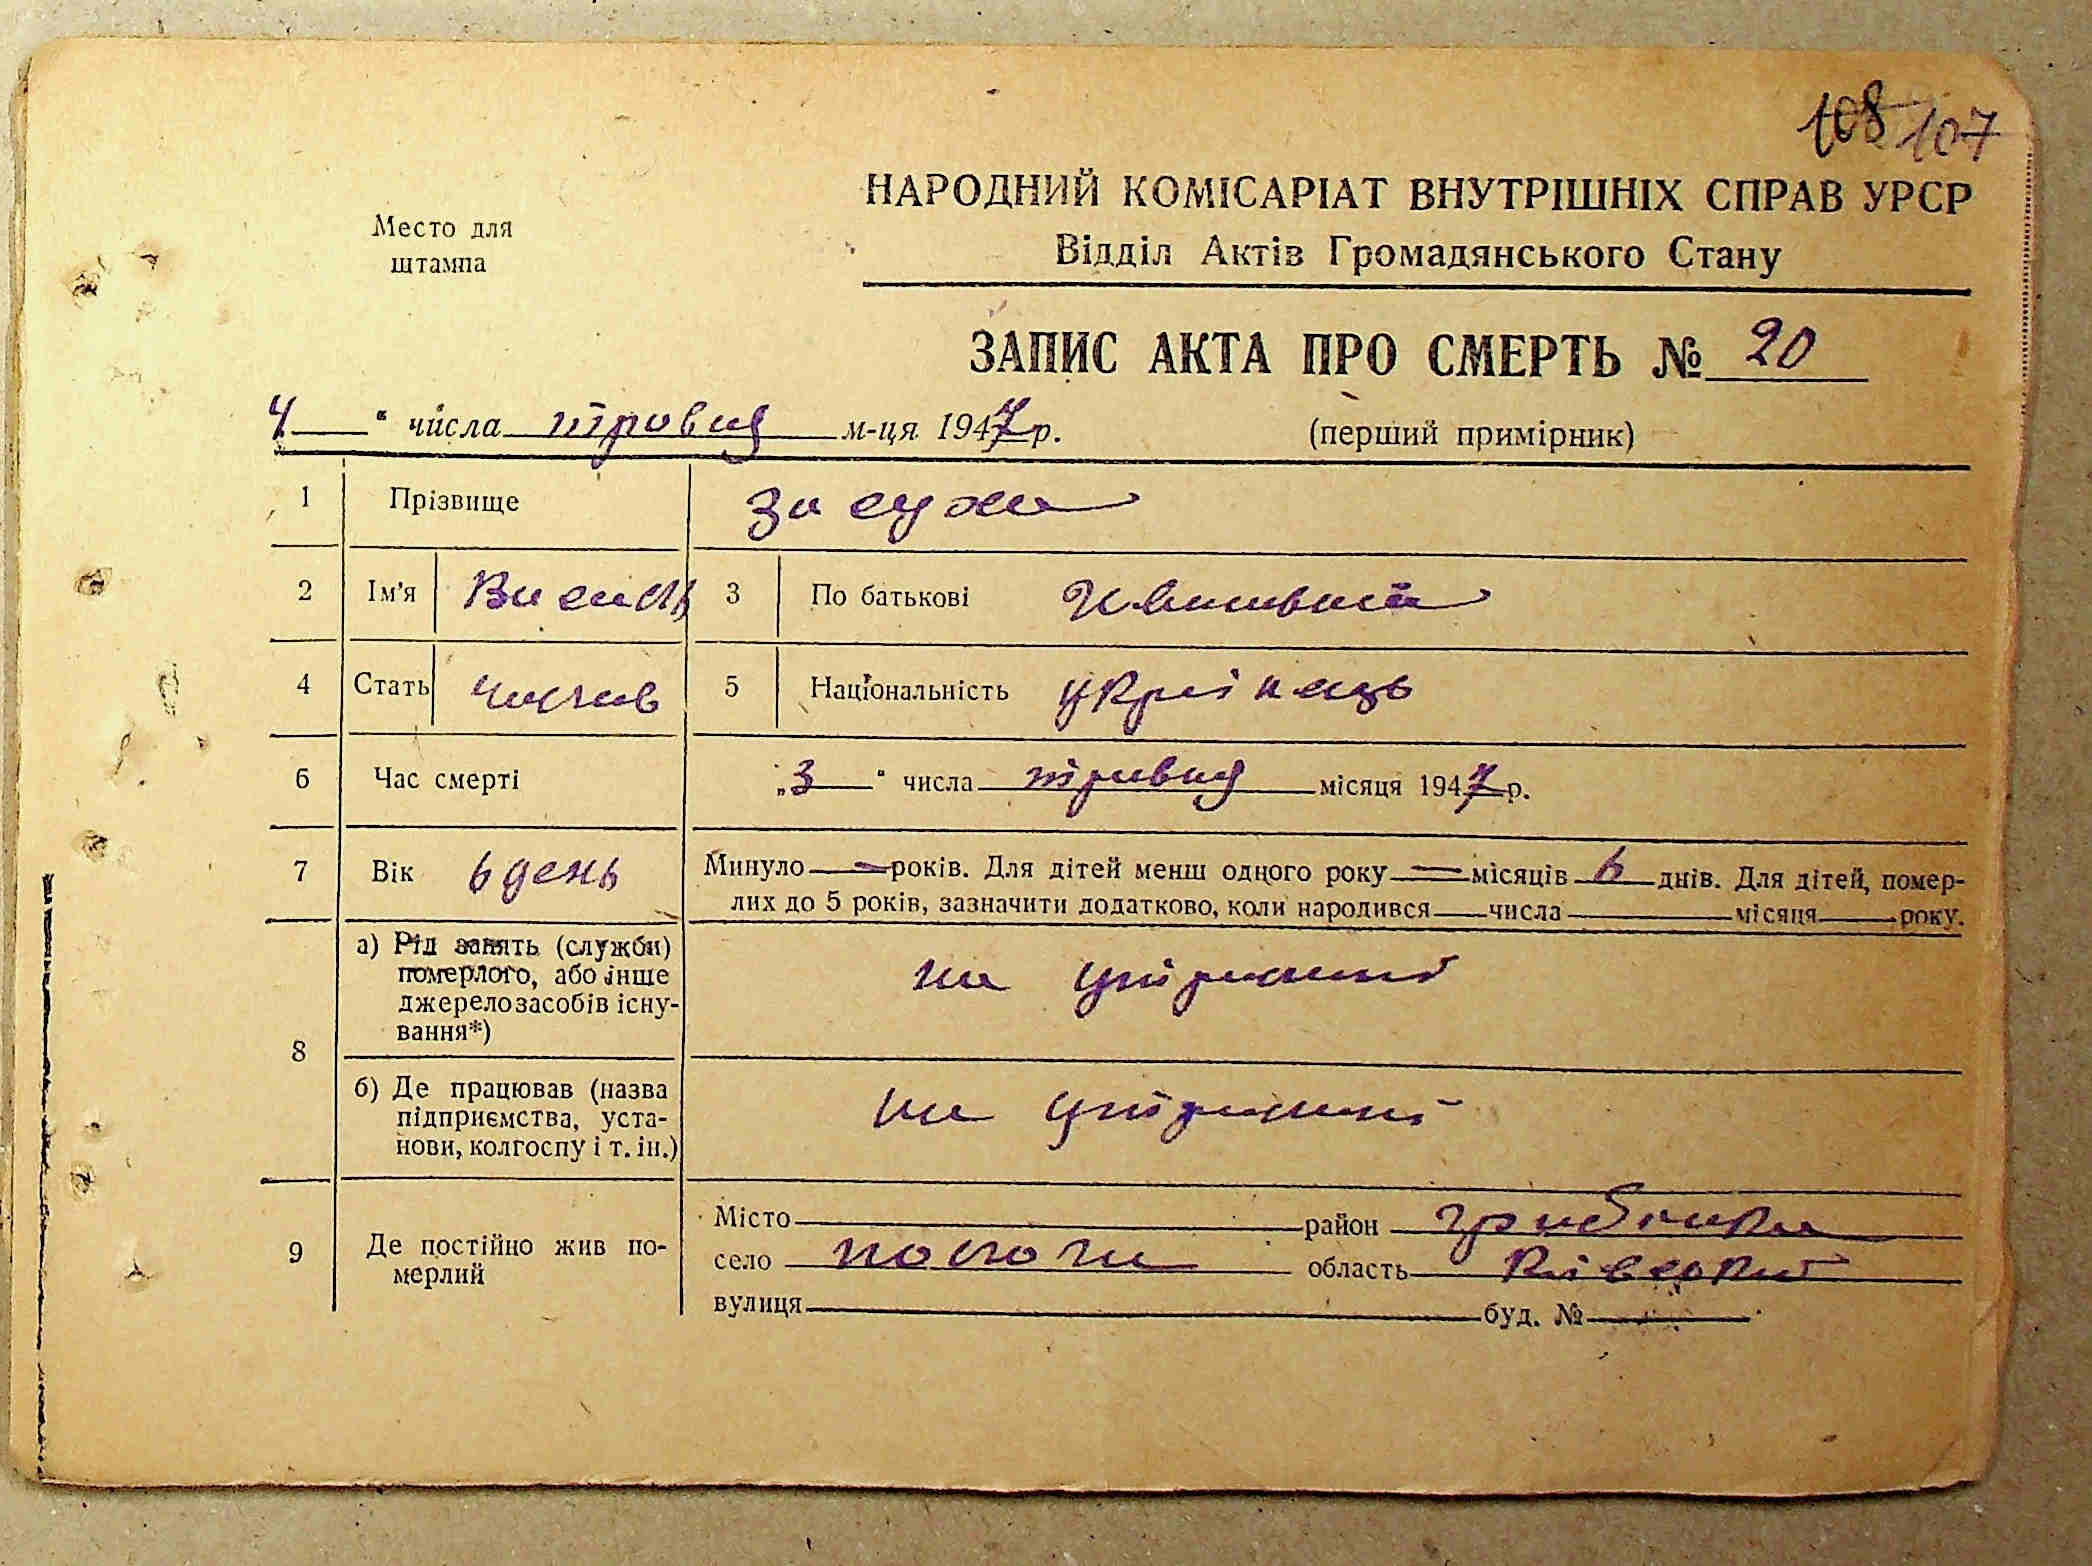 108 107
НАРОДНИЙ КОМІСАРІАТ ВНУТРІШНІХ СПРАВ УРСР
Место для
штампа
Відділ Актів Громадянського Стану
ЗАПИС АКТА ПРО СМЕРТЬ № 20
4 " числа травня м-ця 1947 р.
(перший примірник)
1 Прізвище Засуха
2 Ім'я Василь 3 По батькові
4 Стать 5 Національність українець
6 Час смерті „3 " числа травня місяця 1947 р.
7 Вік 6 день Минуло — років. Для дітей менш одного року — місяців 6 днів. Для дітей, помер-
лих до 5 років, зазначити додатково, коли народився числа місяця року.
8 а) Рід занять (служби)
померлого, або інше
джерело засобів існу-
вання*)
на
б) Де працював (назва
підприємства, уста-
нови, колгоспу і т. ін.)
на
9 Де постійно жив по-
мерлий
Місто район
село область
вулиця буд. №